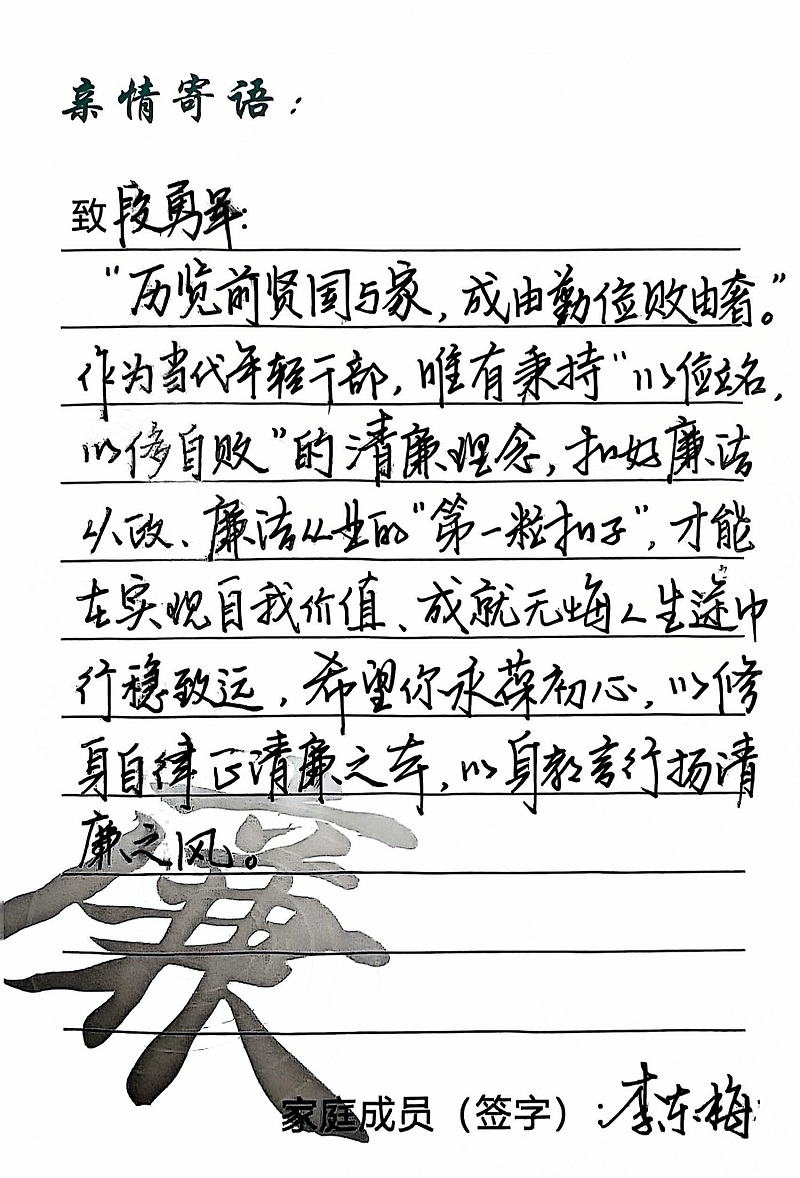 亲情寄语：
致段勇军：
“历览前贤国与家，成由勤俭败由奢。”
作为当代年轻干部，唯有秉持“以俭立名，
以侈自败”的清廉理念，扣好廉洁
从政、廉洁从业的“第一粒扣子”，才能
在实现自我价值、成就无悔人生途中
行稳致远，希望你永葆初心，以修
身自律正清廉之本，以身教言行扬清
廉之风。
廉
家庭成员（签字）：李东梅